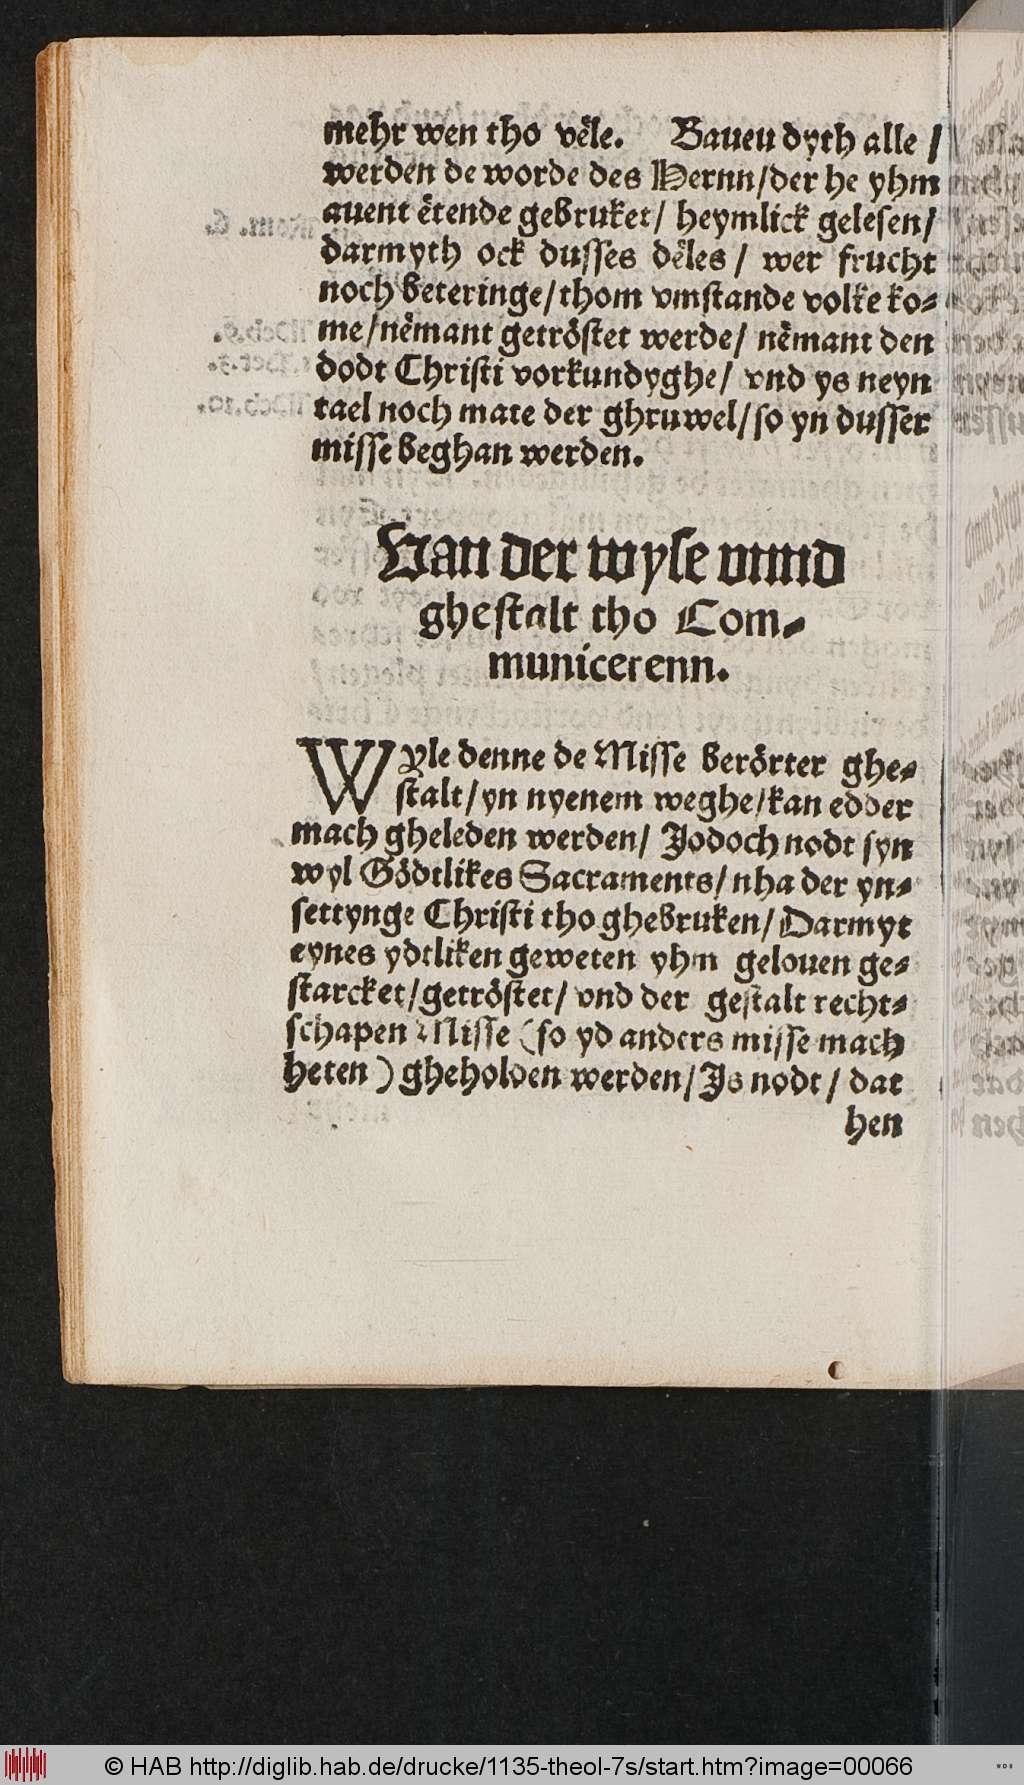 mehr wen tho vële. Baueu dyth alle /
werden de worde des Hernn/der he yhm
auent ëtende gebruket/ heymlick gelesen/
darmyth ock dusses dëles / wer frucht
noch beteringe/thom vmstande volke ko-
me/nëmant getröstet werde/ nëmant den
dodt Christi vorkundyghe/ vnd ys neyn
tael noch mate der ghruwel/so yn dusser
misse beghan werden.
Van der wyse vnnd
ghestalt tho Com-
municerenn.
Wyle denne de Misse berörter ghe-
stalt/yn nyenem weghe/kan edder
mach gheleden werden/ Jodoch nodt syn
wyl Gödtlikes Sacraments/nha der yn-
settynge Christi tho ghebruken/Darmyt
eynes ydtliken geweten yhm gelouen ge-
starcket/getröstet/ vnd der gestalt recht-
schapen Misse (so yd anders misse mach
heten ) gheholden werden/Js nodt/ dat
hen
© HAB http://diglib.hab.de/drucke/1135-theol-7s/start.htm?image=00066